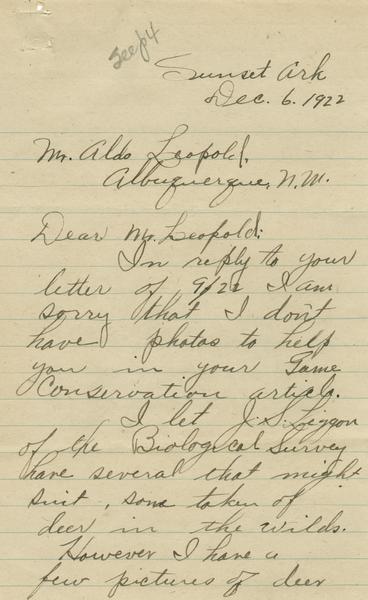 See p4
Sunset Ark
Dec. 6. 1922
Mr. Aldo Leopold,
Albuquerque, N.M.
Dear Mr. Leopold:
In reply to your
letter of 9/22 I am
sorry that I don't
have photos to help
you in your Game
Conservation article.
I let J. S. Liggon
of the Biological Survey
have several that might
suit, some taken of
deer in the wilds.
However I have a
few pictures of deer